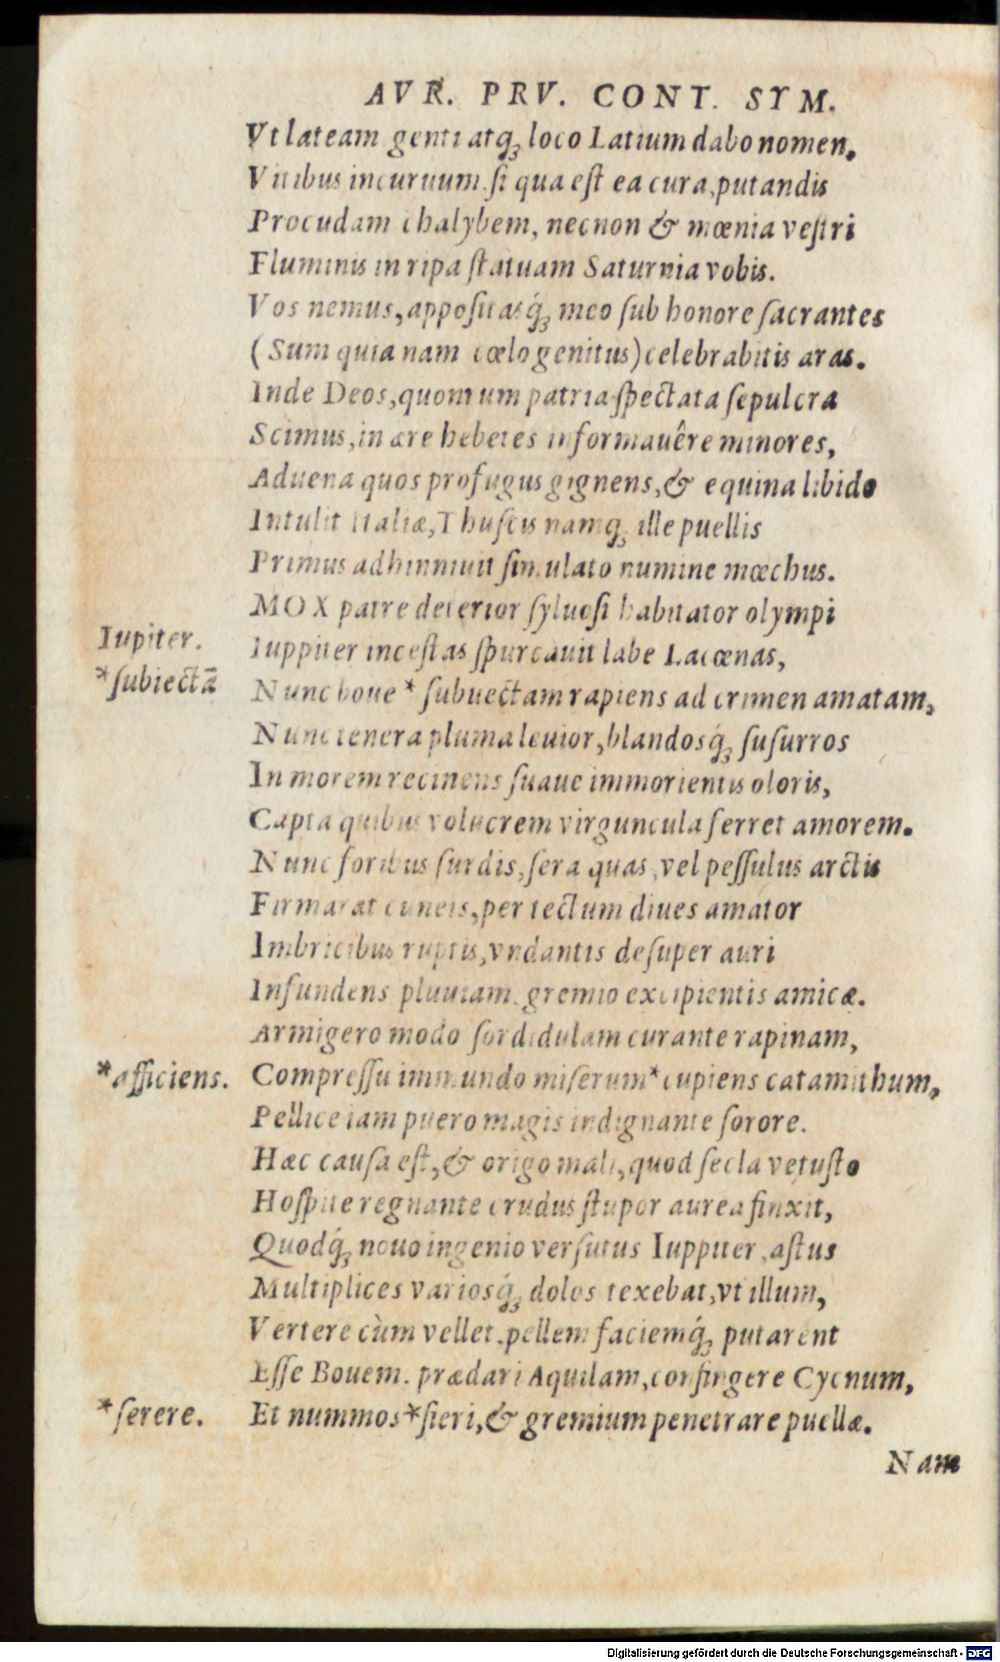 AVR. PRV. CONT. SYM.
Vt lateam genti atq́; loco Latium dabo nomen,
Vitibus incuruum, si qua est ea cura, putandis
Procudam chalybem, necnon & mœnia vestri
Fluminis in ripa statuam Saturnia vobis.
Vos nemus, appositasq́; meo sub honore sacrantes
(Sum quia nam cœlo genitus) celebrabitis aras.
Inde Deos, quorum patria spectata sepulcra
Scimus, in ære hebetes informauêre minores,
Aduena quos profugus gignens, & equina libido
Intulit Italiæ, Thuscis namq; ille puellis
Primus adhinniuit simulato numine mœchus.
MOX patre deterior syluosi habitator olympi
Iupiter.
Iuppiter incestas spurcauit labe Lacœnas,
*subiectã
Nunc boue * subuectam rapiens ad crimen amatam,
Nunc tenera pluma leuior, blandosq́; susurros
In morem recinens suaue immorientis oloris,
Capta quibus volucrem virguncula ferret amorem.
Nunc foribus surdis, sera quas, vel pessulus arctis
Firmarat cuneis, per tectum diues amator
Imbricibus ruptis, vndantis desuper auri
Infundens pluuiam, gremio excipientis amicæ.
Armigero modo sordidulam curante rapinam,
*afficiens.
Compressu immundo miserum * cupiens catamithum,
Pellice iam puero magis indignante sorore.
Hæc causa est, & origo mali, quod secla vetusto
Hospite regnante crudus stupor aurea finxit,
Quodq́; nouo ingenio versutus Iuppiter, astus
Multiplices variosq́; dolos texebat, vt illum,
Vertere cùm vellet, pellem faciemq́; putarent
Esse Bouem, prædari Aquilam, confingere Cycnum,
*serere.
Et nummos * fieri, & gremium penetrare puellæ.
Nam
Digitalisierung gefördert durch die Deutsche Forschungsgemeinschaft - DFG